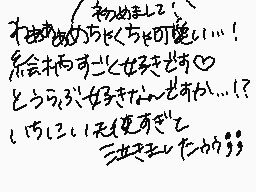 初めまして!
わぁぁぁめちゃくちゃ可愛い…!
絵柄すごく好きです♡
とうらぶ好きなんですか…!?
いちにい天使すぎて
泣きましたぅぅ;;